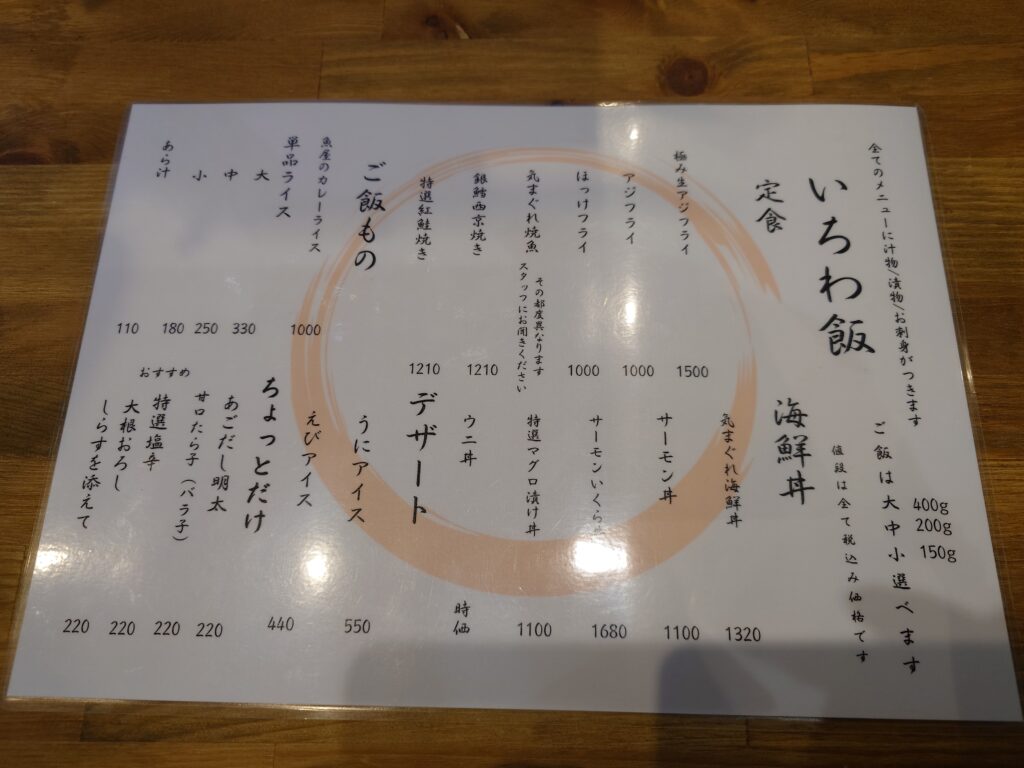 全てのメニューに汁物、漬物、お刺身がつきます
いちわ飯
ご飯は大中小選べます
400g
200g
150g
値段は全て税込み価格です
定食
極み生アジフライ 1500
アジフライ 1000
ほっけフライ 1000
気まぐれ焼魚
その都度異なります
スタッフにお聞きください
銀鱈西京焼き 1210
特選紅鮭焼き 1210
ご飯もの
魚屋のカレーライス 1000
単品ライス
大 330
中 250
小 180
あら汁 110
海鮮丼
気まぐれ海鮮丼 1320
サーモン丼 1100
サーモンいくら丼 1680
特選マグロ漬け丼 1100
ウニ丼 時価
デザート
うにアイス 550
えびアイス 440
ちょっとだけ
あごだし明太 220
甘口たら子(バラ子) 220
おすすめ
特選塩辛 220
大根おろし 220
しらすを添えて 220